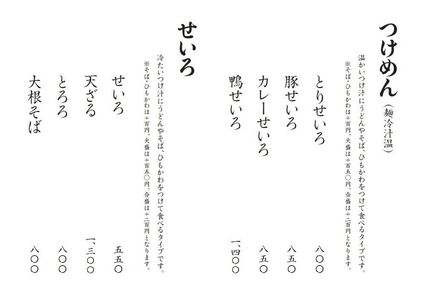 つけめん（麺冷汁温）
温かいつけ汁にうどんやそば、ひもかわをつけて食べるタイプです。
※そば・ひもかわは＋百円、大盛は＋百五〇円、合盛は＋二百円となります。
とりせいろ 八〇〇
豚せいろ 八五〇
カレーせいろ 八五〇
鴨せいろ 一、四〇〇
せいろ
冷たいつけ汁にうどんやそば、ひもかわをつけて食べるタイプです。
※そば・ひもかわは＋百円、大盛は＋百五〇円、合盛は＋二百円となります。
せいろ 五五〇
天ざる 一、三〇〇
とろろ 八〇〇
大根そば 八〇〇